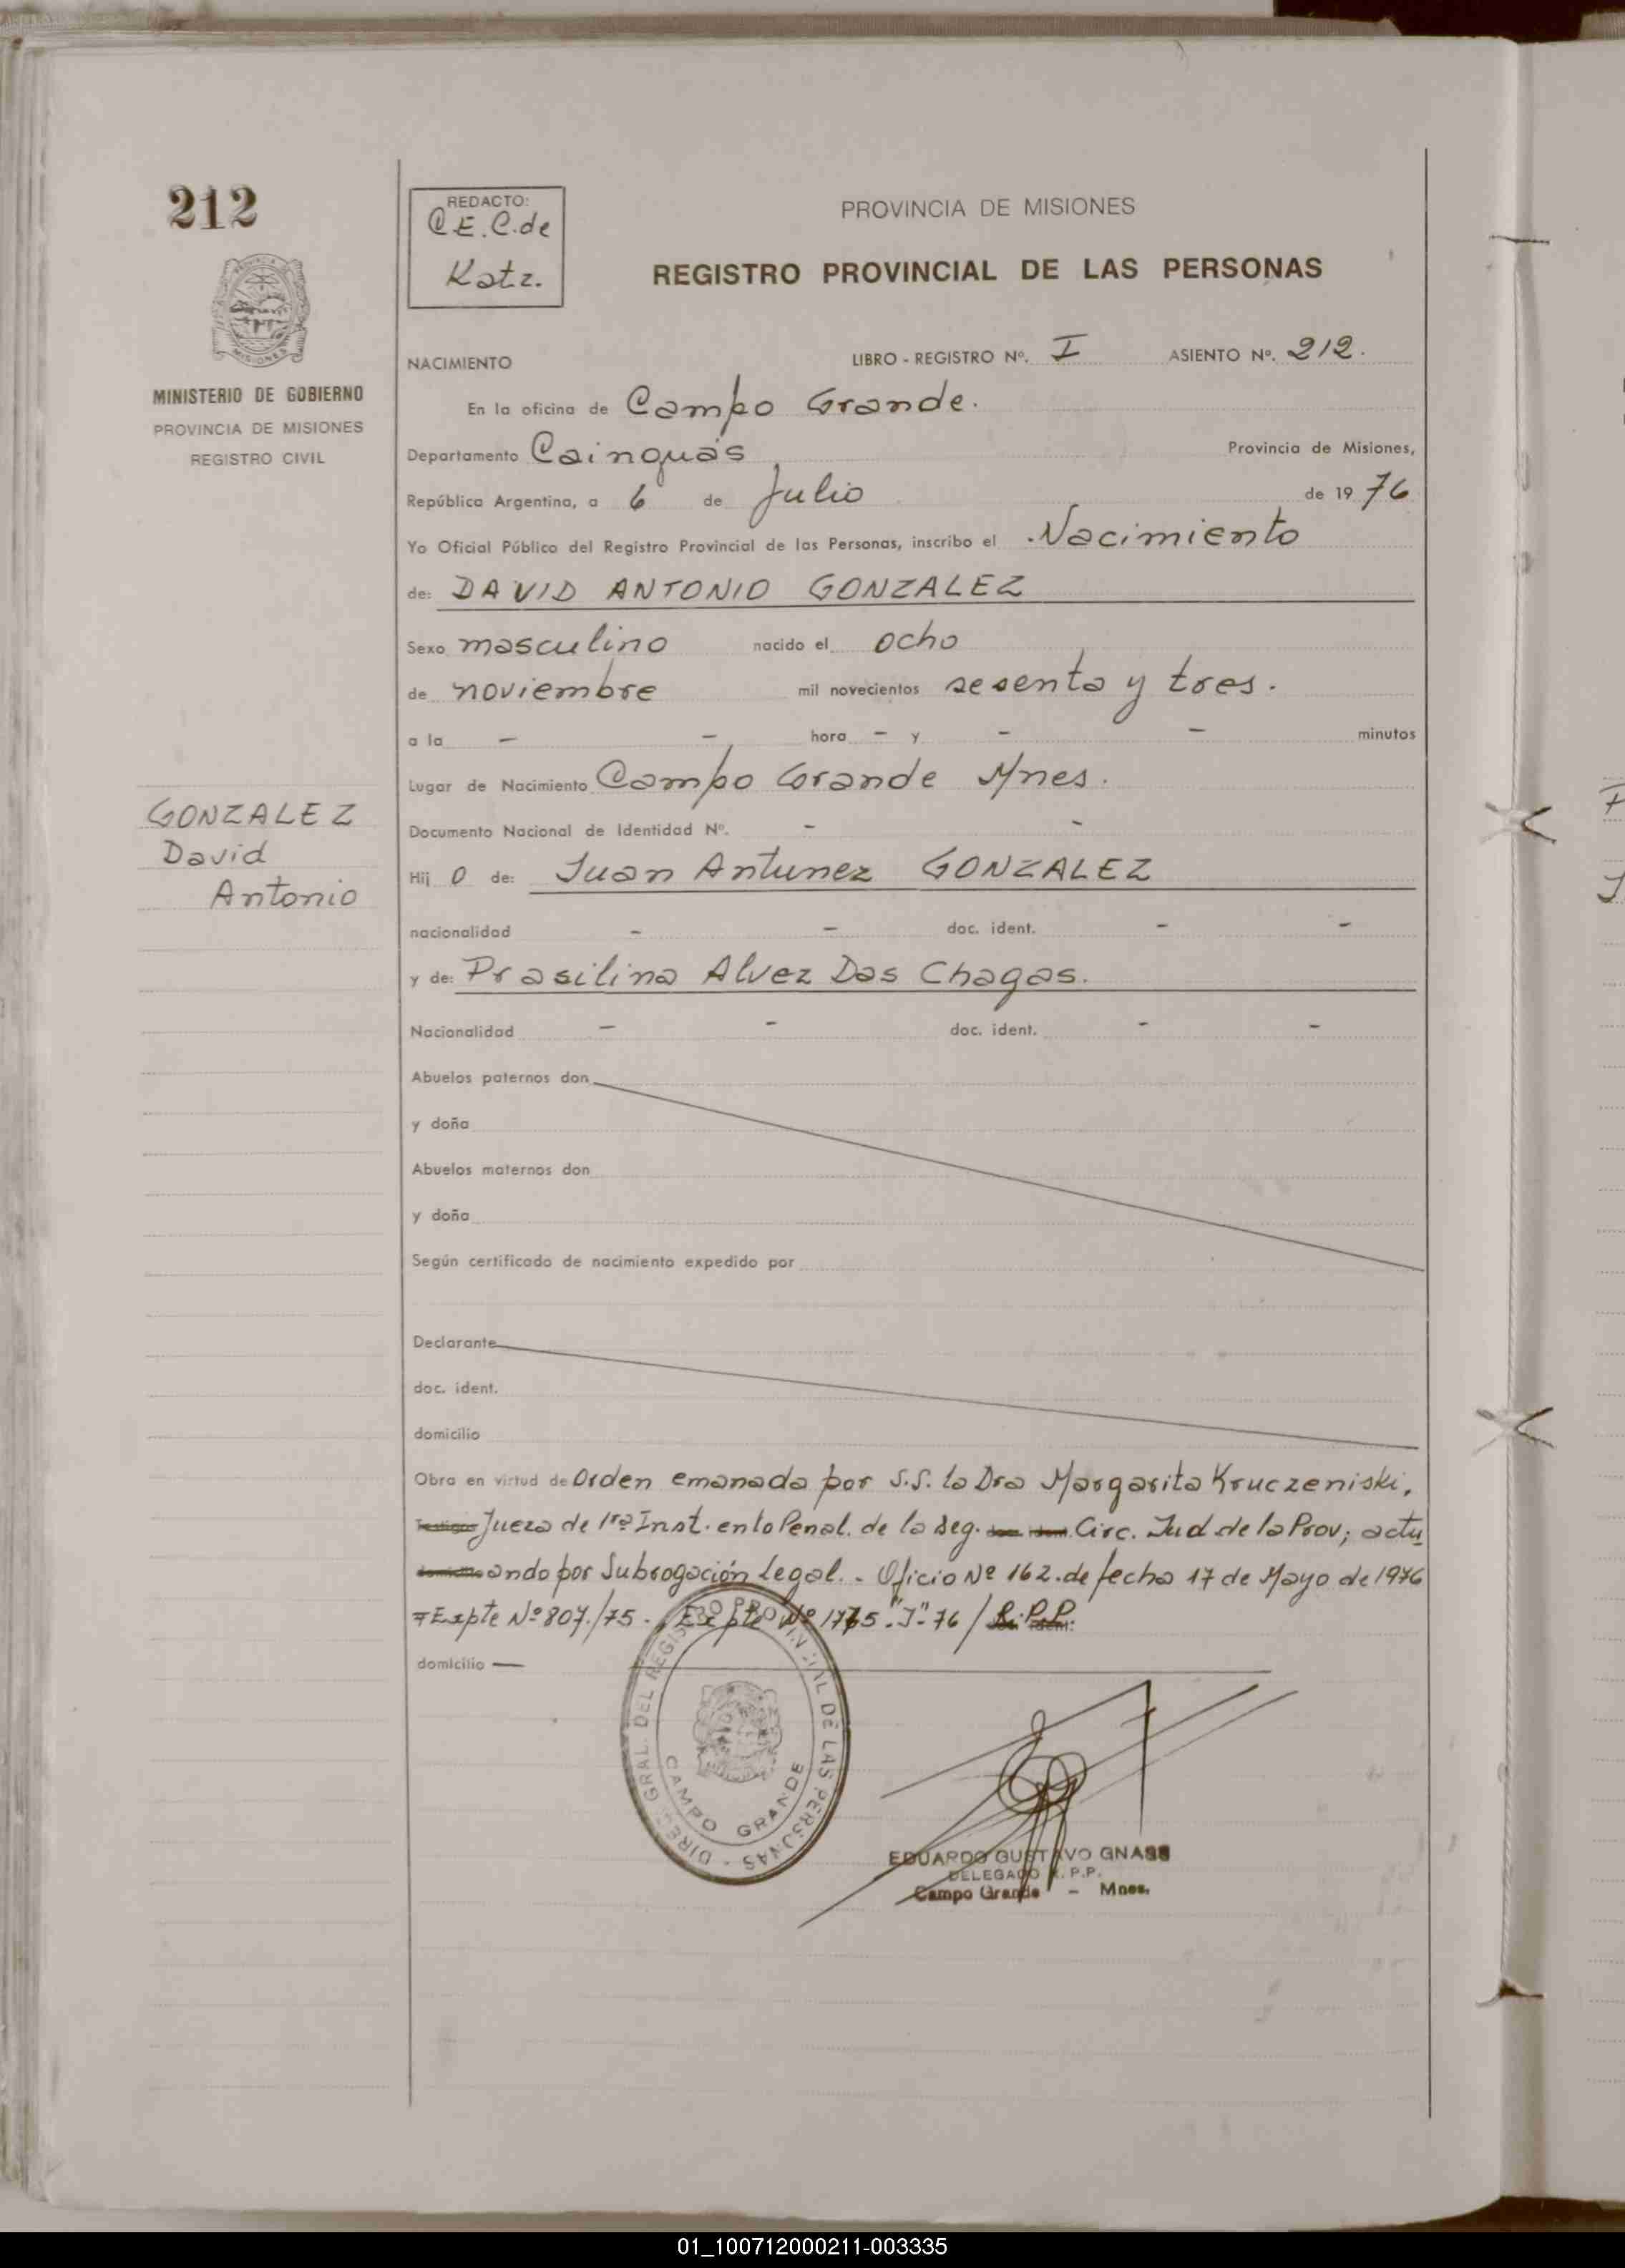 212
REDACTO:
C.E.C. de
Katz.
PROVINCIA DE MISIONES
REGISTRO PROVINCIAL DE LAS PERSONAS
MISIONES
MINISTERIO DE GOBIERNO
PROVINCIA DE MISIONES
REGISTRO CIVIL
NACIMIENTO LIBRO - REGISTRO Nº. I ASIENTO Nº. 212.
En la oficina de Campo Grande.
Departamento Cainguás Provincia de Misiones,
República Argentina, a 6 de Julio de 1976
Yo Oficial Público del Registro Provincial de las Personas, inscribo el Nacimiento
de: DAVID ANTONIO GONZALEZ
Sexo masculino nacido el ocho
de noviembre mil novecientos sesenta y tres.
a la - - hora - y - - minutos
Lugar de Nacimiento Campo Grande Mnes.
GONZALEZ
David
Antonio
Documento Nacional de Identidad Nº. - -
Hij o de: Juan Antunez GONZALEZ
nacionalidad - - doc. ident. - -
y de: Prasilina Alvez Das Chagas.
Nacionalidad - - doc. ident. - -
Abuelos paternos don
y doña
Abuelos maternos don
y doña
Según certificado de nacimiento expedido por
Declarante
doc. ident.
domicilio
Obra en virtud de Orden emanada por S.S. la Dra Margarita Kruczeniski,
Testigos Jueza de 1ra Inst. en lo Penal. de la Seg. doc. ident. Circ. Jud de la Prov; actu
domicilio ando por Subrogación Legal. - Oficio Nº 162. de fecha 17 de Mayo de 1976
= Expte Nº 807/75. Expte Nº 1775 "J"- 76 / R.P.P.
domicilio —
DIREC. GRAL. DEL REGISTRO PROVINCIAL DE LAS PERSONAS -
CAMPO GRANDE
EDUARDO GUSTAVO GNASS
DELEGADO R.P.P.
Campo Grande - Mnes.
01_100712000211-003335